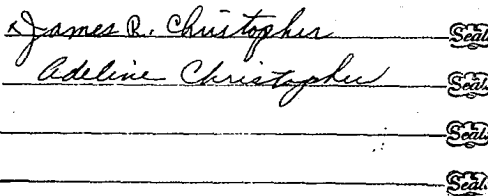 x James R. Christopher Seal
Adeline Christopher Seal
Seal
Seal